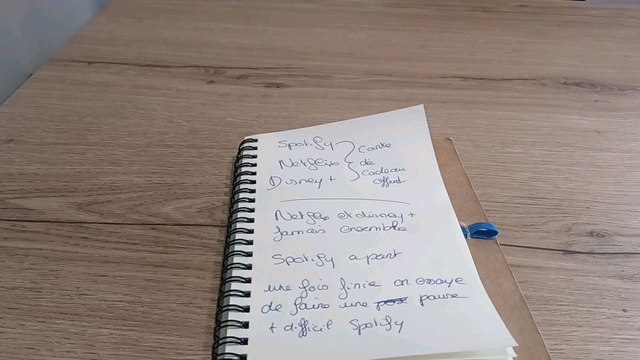 Spotify
Netflix
Disney +
Carte
de
cadeau
offert
Netflix et disney +
jamais ensemble
Spotify a part
une fois finie on essaye
de faire une pause
+ difficil Spotify